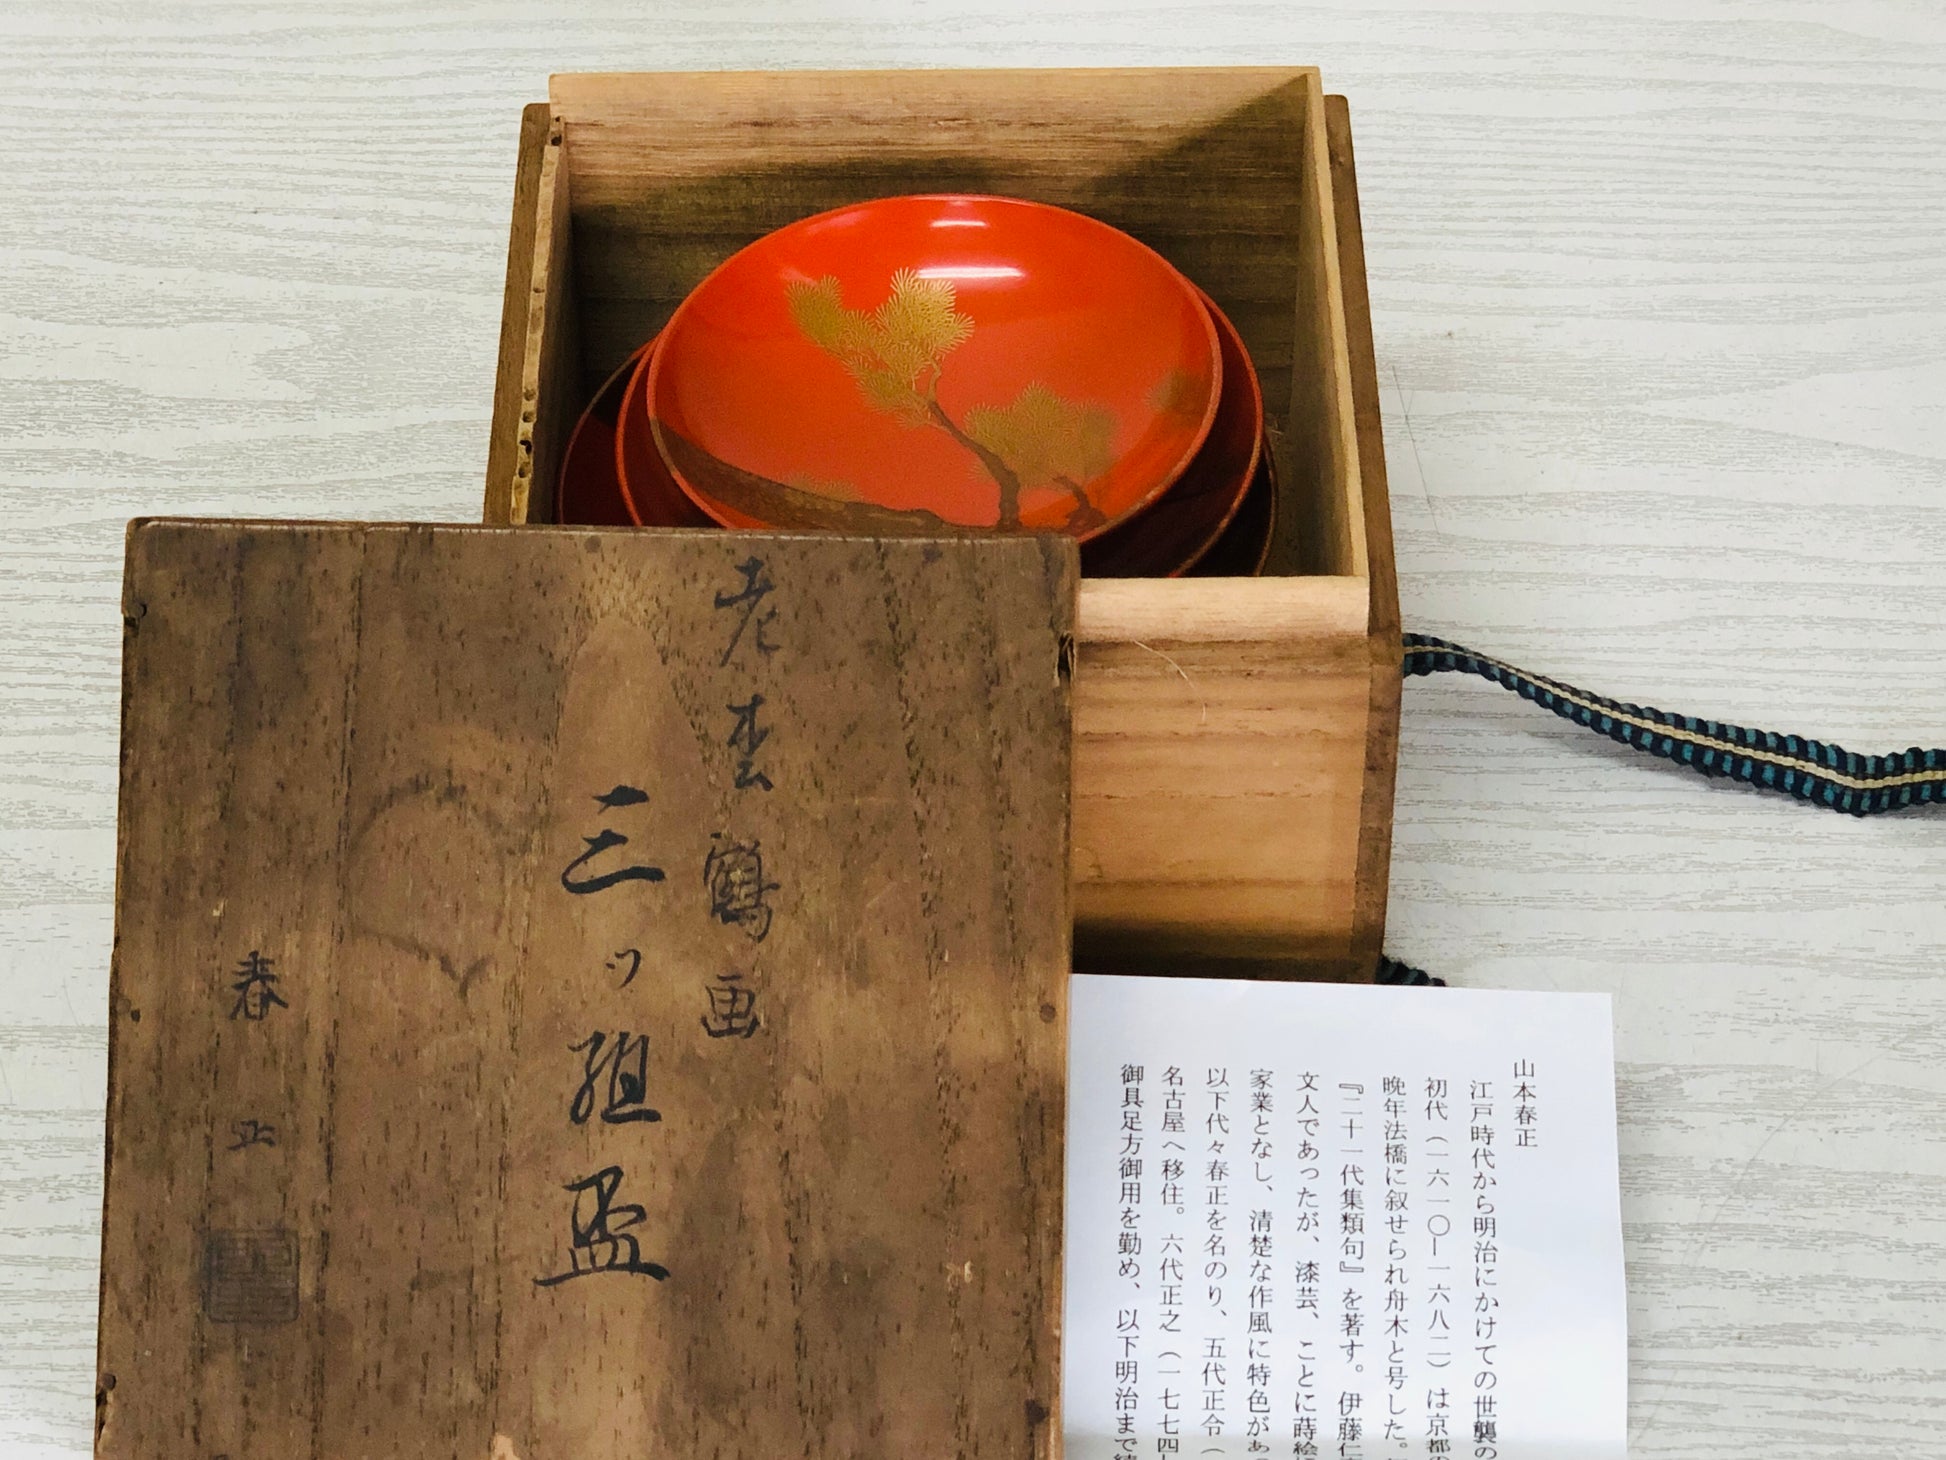 老松鶴画
三ツ組盃
春正
山本春正
江戸時代から明治にかけての世襲の
初代（一六一〇―一六八二）は京都の
晩年法橋に叙せられ舟木と号した。
『二十一代集類句』を著す。伊藤仁
文人であったが、漆芸、ことに蒔絵
家業となし、清楚な作風に特色があ
以下代々春正を名のり、五代正令（
名古屋へ移住。六代正之（一七七四
御具足方御用を勤め、以下明治まで続